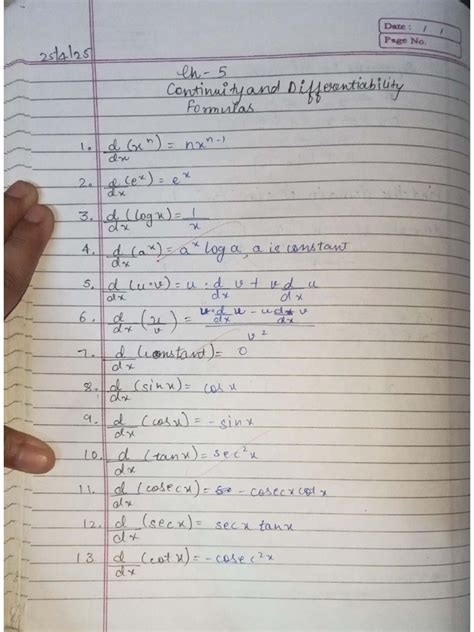 Date: / /
Page No.
25/4/25
Ch - 5
Continuity and Differentiability
Formulas
1. d/dx (xⁿ) = nxⁿ⁻¹
2. d/dx (eˣ) = eˣ
3. d/dx (log x) = 1/x
4. d/dx (aˣ) = aˣ log a, a is constant
5. d/dx (u·v) = u · d/dx v + v d/dx u
6. d/dx (u/v) = (v·d/dx u - u d/dx v)/v²
7. d/dx (constant) = 0
8. d/dx (sin x) = cos x
9. d/dx (cos x) = - sin x
10. d/dx (tan x) = sec² x
11. d/dx (cosec x) = - cosec x cot x
12. d/dx (sec x) = sec x tan x
13. d/dx (cot x) = - cosec² x